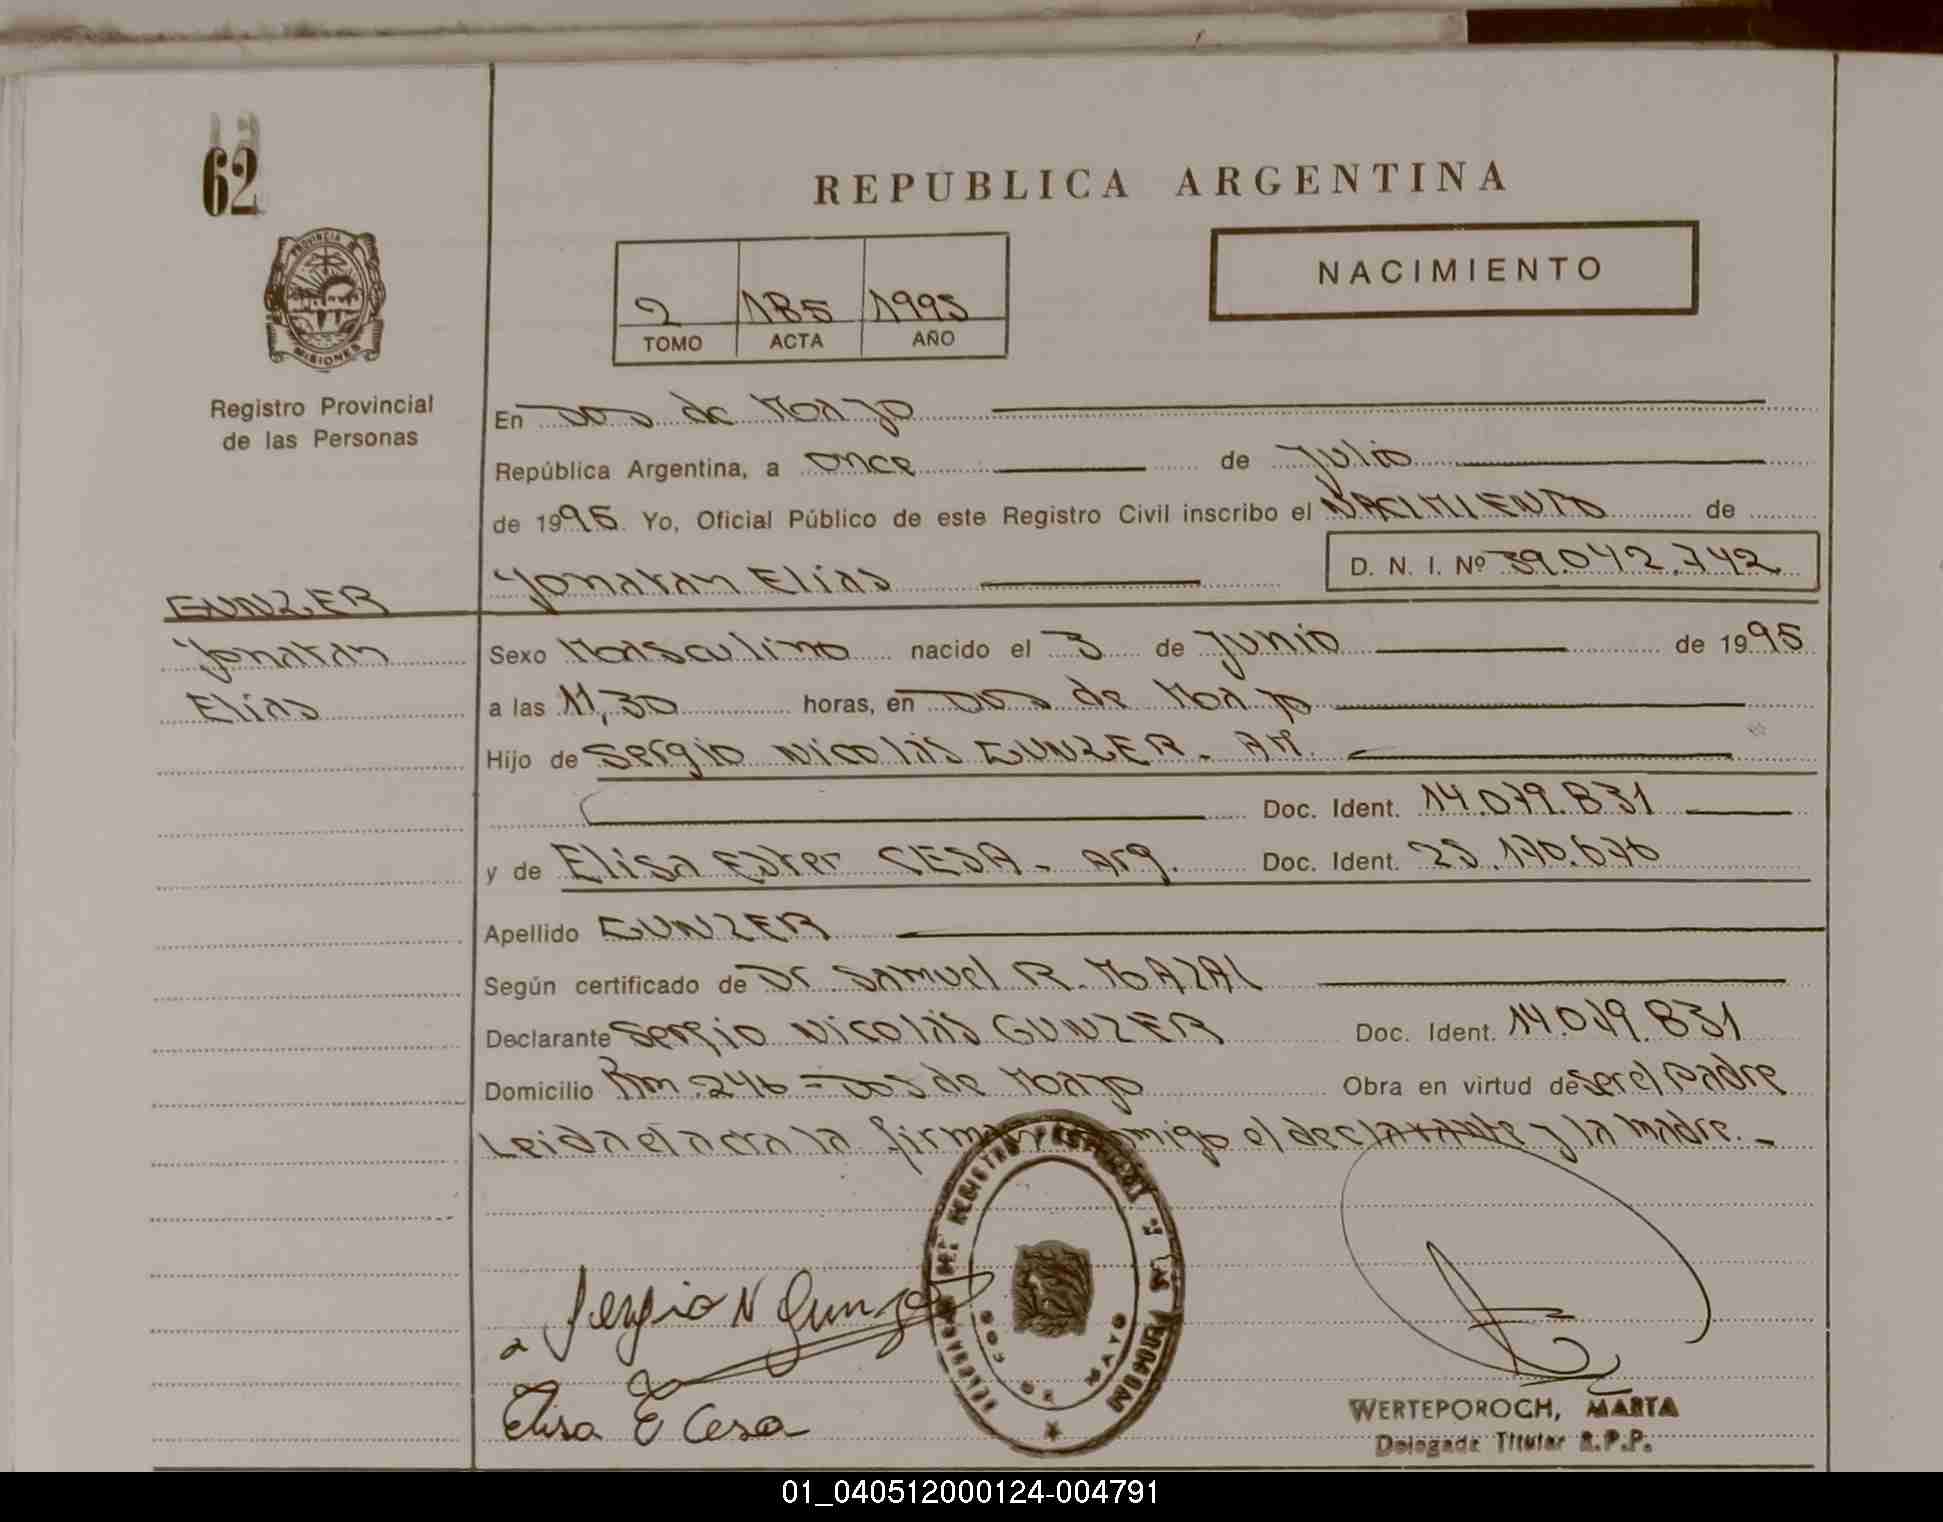 62
REPUBLICA ARGENTINA
PROVINCIA DE
MISIONES
NACIMIENTO
2 185 1995
TOMO ACTA AÑO
Registro Provincial
de las Personas
En Dos de Mayo
República Argentina, a once de Julio
de 1995 Yo, Oficial Público de este Registro Civil inscribo el NACIMIENTO de
Yonatan Elias D. N. I. Nº 39.042.742
GUNZER
Yonatan
Elias
Sexo Masculino nacido el 3 de Junio de 1995
a las 11,30 horas, en Dos de Mayo
Hijo de Sergio Nicolás GUNZER - Ar.
Doc. Ident. 14.079.831
y de Elisa Ester CESA - Arg. Doc. Ident. 25.170.676
Apellido GUNZER
Según certificado de Dr Samuel R. MAZAL
Declarante Sergio Nicolás GUNZER Doc. Ident. 14.079.831
Domicilio Km 246 = Dos de Mayo Obra en virtud de ser el padre
Leida el acta la firman conmigo el declarante y la madre. -
REGISTRO PROVINCIAL DE LAS PERSONAS
DOS DE MAYO
Sergio N Gunzer
Elisa E Cesa
WERTEPOROCH, MARTA
Delegada Titular R.P.P.
01_040512000124-004791